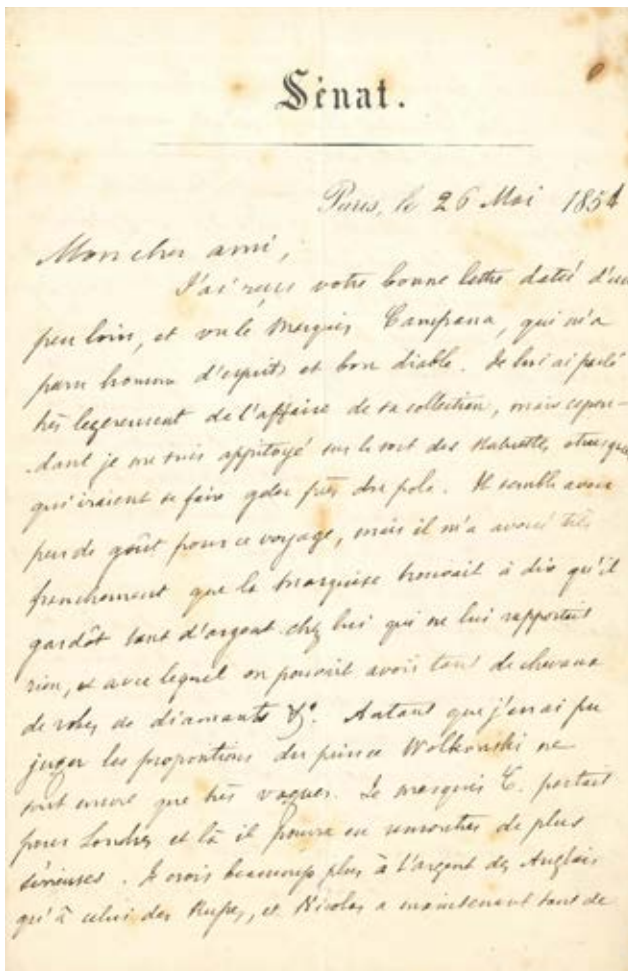 Sénat.
Paris, le 26 Mai 1854
Mon cher ami,
J'ai reçu votre bonne lettre datée d'un
peu loin, et vu le Marquis Campana, qui m'a
paru homme d'esprit et bon diable. Je lui ai parlé
très legerement de l'affaire de sa collection, mais cepen-
dant je me suis appitoyé sur le sort des statuettes etrusques
qui iraient se faire geler près du pole. Il semble avoir
peu de goût pour ce voyage, mais il m'a avoué très
franchement que la marquise trouvait à dire qu'il
gardât tant d'argent chez lui qui ne lui rapportait
rien, et avec lequel on pouvait avoir tant de chevaux
de robes de diamants &c. Autant que j'en ai pu
juger les propositions du prince Wolkonski ne
sont encore que très vagues. Le marquis C. partait
pour Londres et là il pourra en remontrer de plus
sérieuses. Je crois beaucoup plus à l'argent des Anglais
qu'à celui des Russes, et Nicolas a maintenant tant de